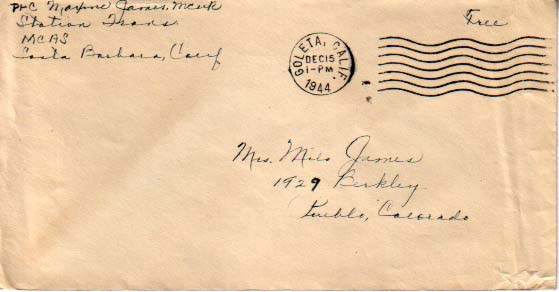 Pfc Maxine James, MCWR
Station Trans
MCAS
Santa Barbara, Calif
Free
GOLETA, CALIF.
DEC 15
1-PM
1944
Mrs. Milo James
1929 Berkley
Pueblo, Colorado